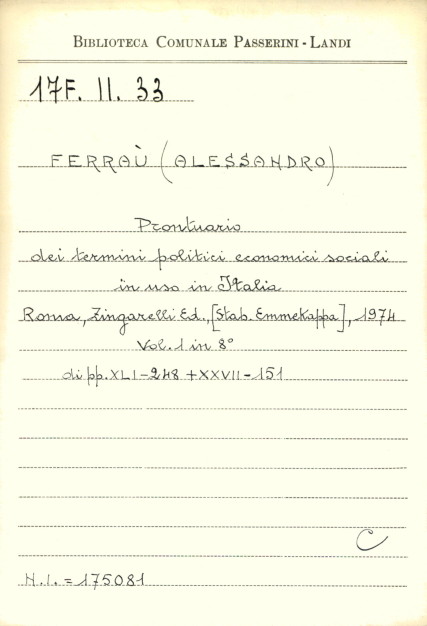 BIBLIOTECA COMUNALE PASSERINI - LANDI
17F. II. 33
FERRAÙ (ALESSANDRO)
Prontuario
dei termini politici economici sociali
in uso in Italia
Roma, Zingarelli Ed., [Stab. Emmekappa], 1974
Vol. 1 in 8°
di pp. XLI-248 + XXVII-151
C
N.I. = 175081